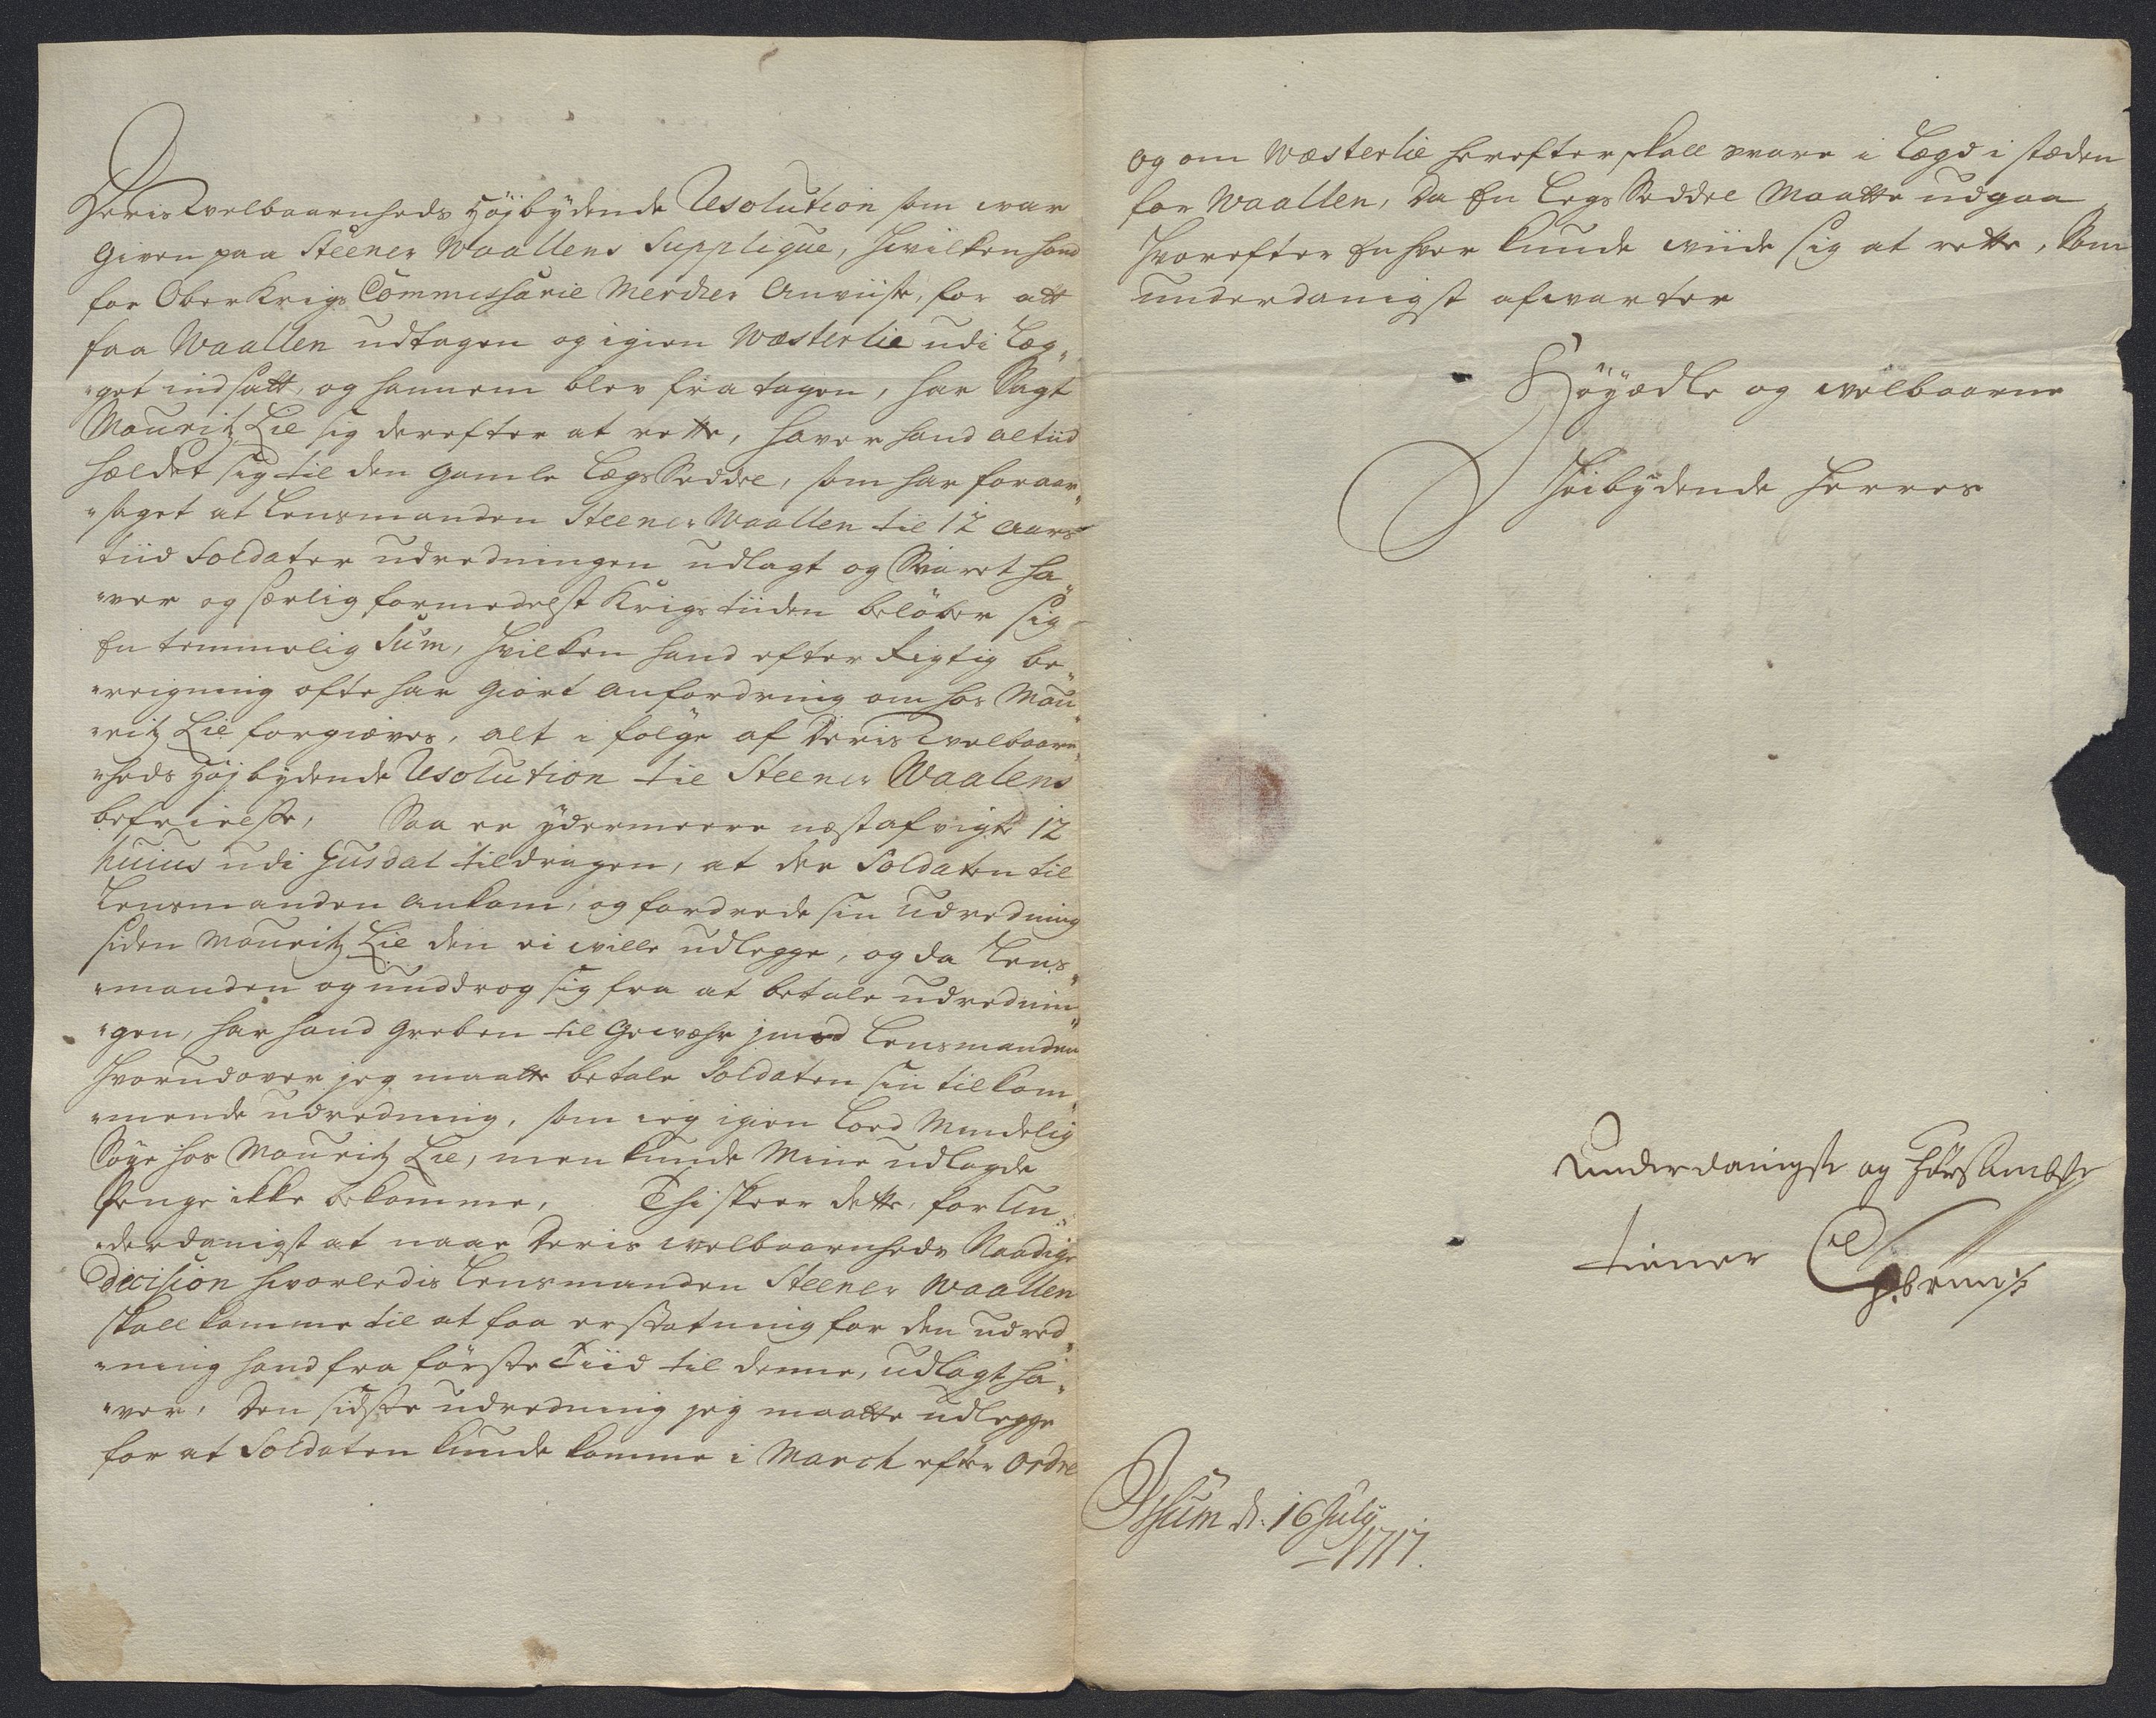 Deris Welbaarenheds Høj bydende Resolution som war
Given paa Steener Waallens Supplique, Hwilken hand
for Ober Krigs Commissarie Mercker Anviiste, for att
faa Waallen udtagen og igien Wæsterlie udi Læg„
„get indsatt, og hannem blev fra tagen, har Sagt
Mouritz Lie sig derefter at rette, haver hand altiid
holdet sig til den gamle Lægs Seddel, som har foraar„
„saget at Lensmanden Steener Waallen til 12 aars
tiid Soldater udredningen udlagt og Svaret ha„
„ver og særlig formedelst Krigs tiiden beløber sig
En temmelig Sum, hvilken hand efter Rigtig be„
„reigning ofte har giort anfordring om hos Mou„
„ritz Lie forgiæves, alt i følge af Deris Welbaaren„
„heds Høj bydende Resolution til Steener Waalens
befrielse, Saa er ydermeere næst afvigte 12
huius udi Gusdal tildragen, at der Soldaten til
Lensmanden ankom, og fordrede sin Udredning
siden Mouritz Lie den ei wille udlegge, og da Lens„
„manden og unddrog sig fra at betale udrednin„
„gen, har hand Greben til Gewæhr imod Lensmanden
hvorudover jeg maatte betale Soldaten sin tilkom„
„mende udredning, som ieg igien Loed Mindelig
Søge hos Mouritz Lie, men kunde Mine udlagde
Penge ikke bekomme, Thi skeer dette, for Un„
„derdanigst at naae Deris welbaarenheds Naadige
Decision hvorledis Lensmanden Steener Waallen
skall komme til at faa erstatning for den udred„
„ning hand fra første Tiid til denne, udlagt ha„
„ver, Den sidste udredning jeg maatte udlegge
for at Soldaten kunde komme i March efter Ordre
og om Wæsterlie herefter skall svare i Lægd i stæden
for Waallen, Da En Legs Seddel Maatte udgaa
hvorefter Enhver kunde wiide sig at rette, som
underdanigst afwarter
Høyædle og welbaarne
Høibydende Herres
Underdanigste og hørsambste
tiener
d. 16 July
1717.